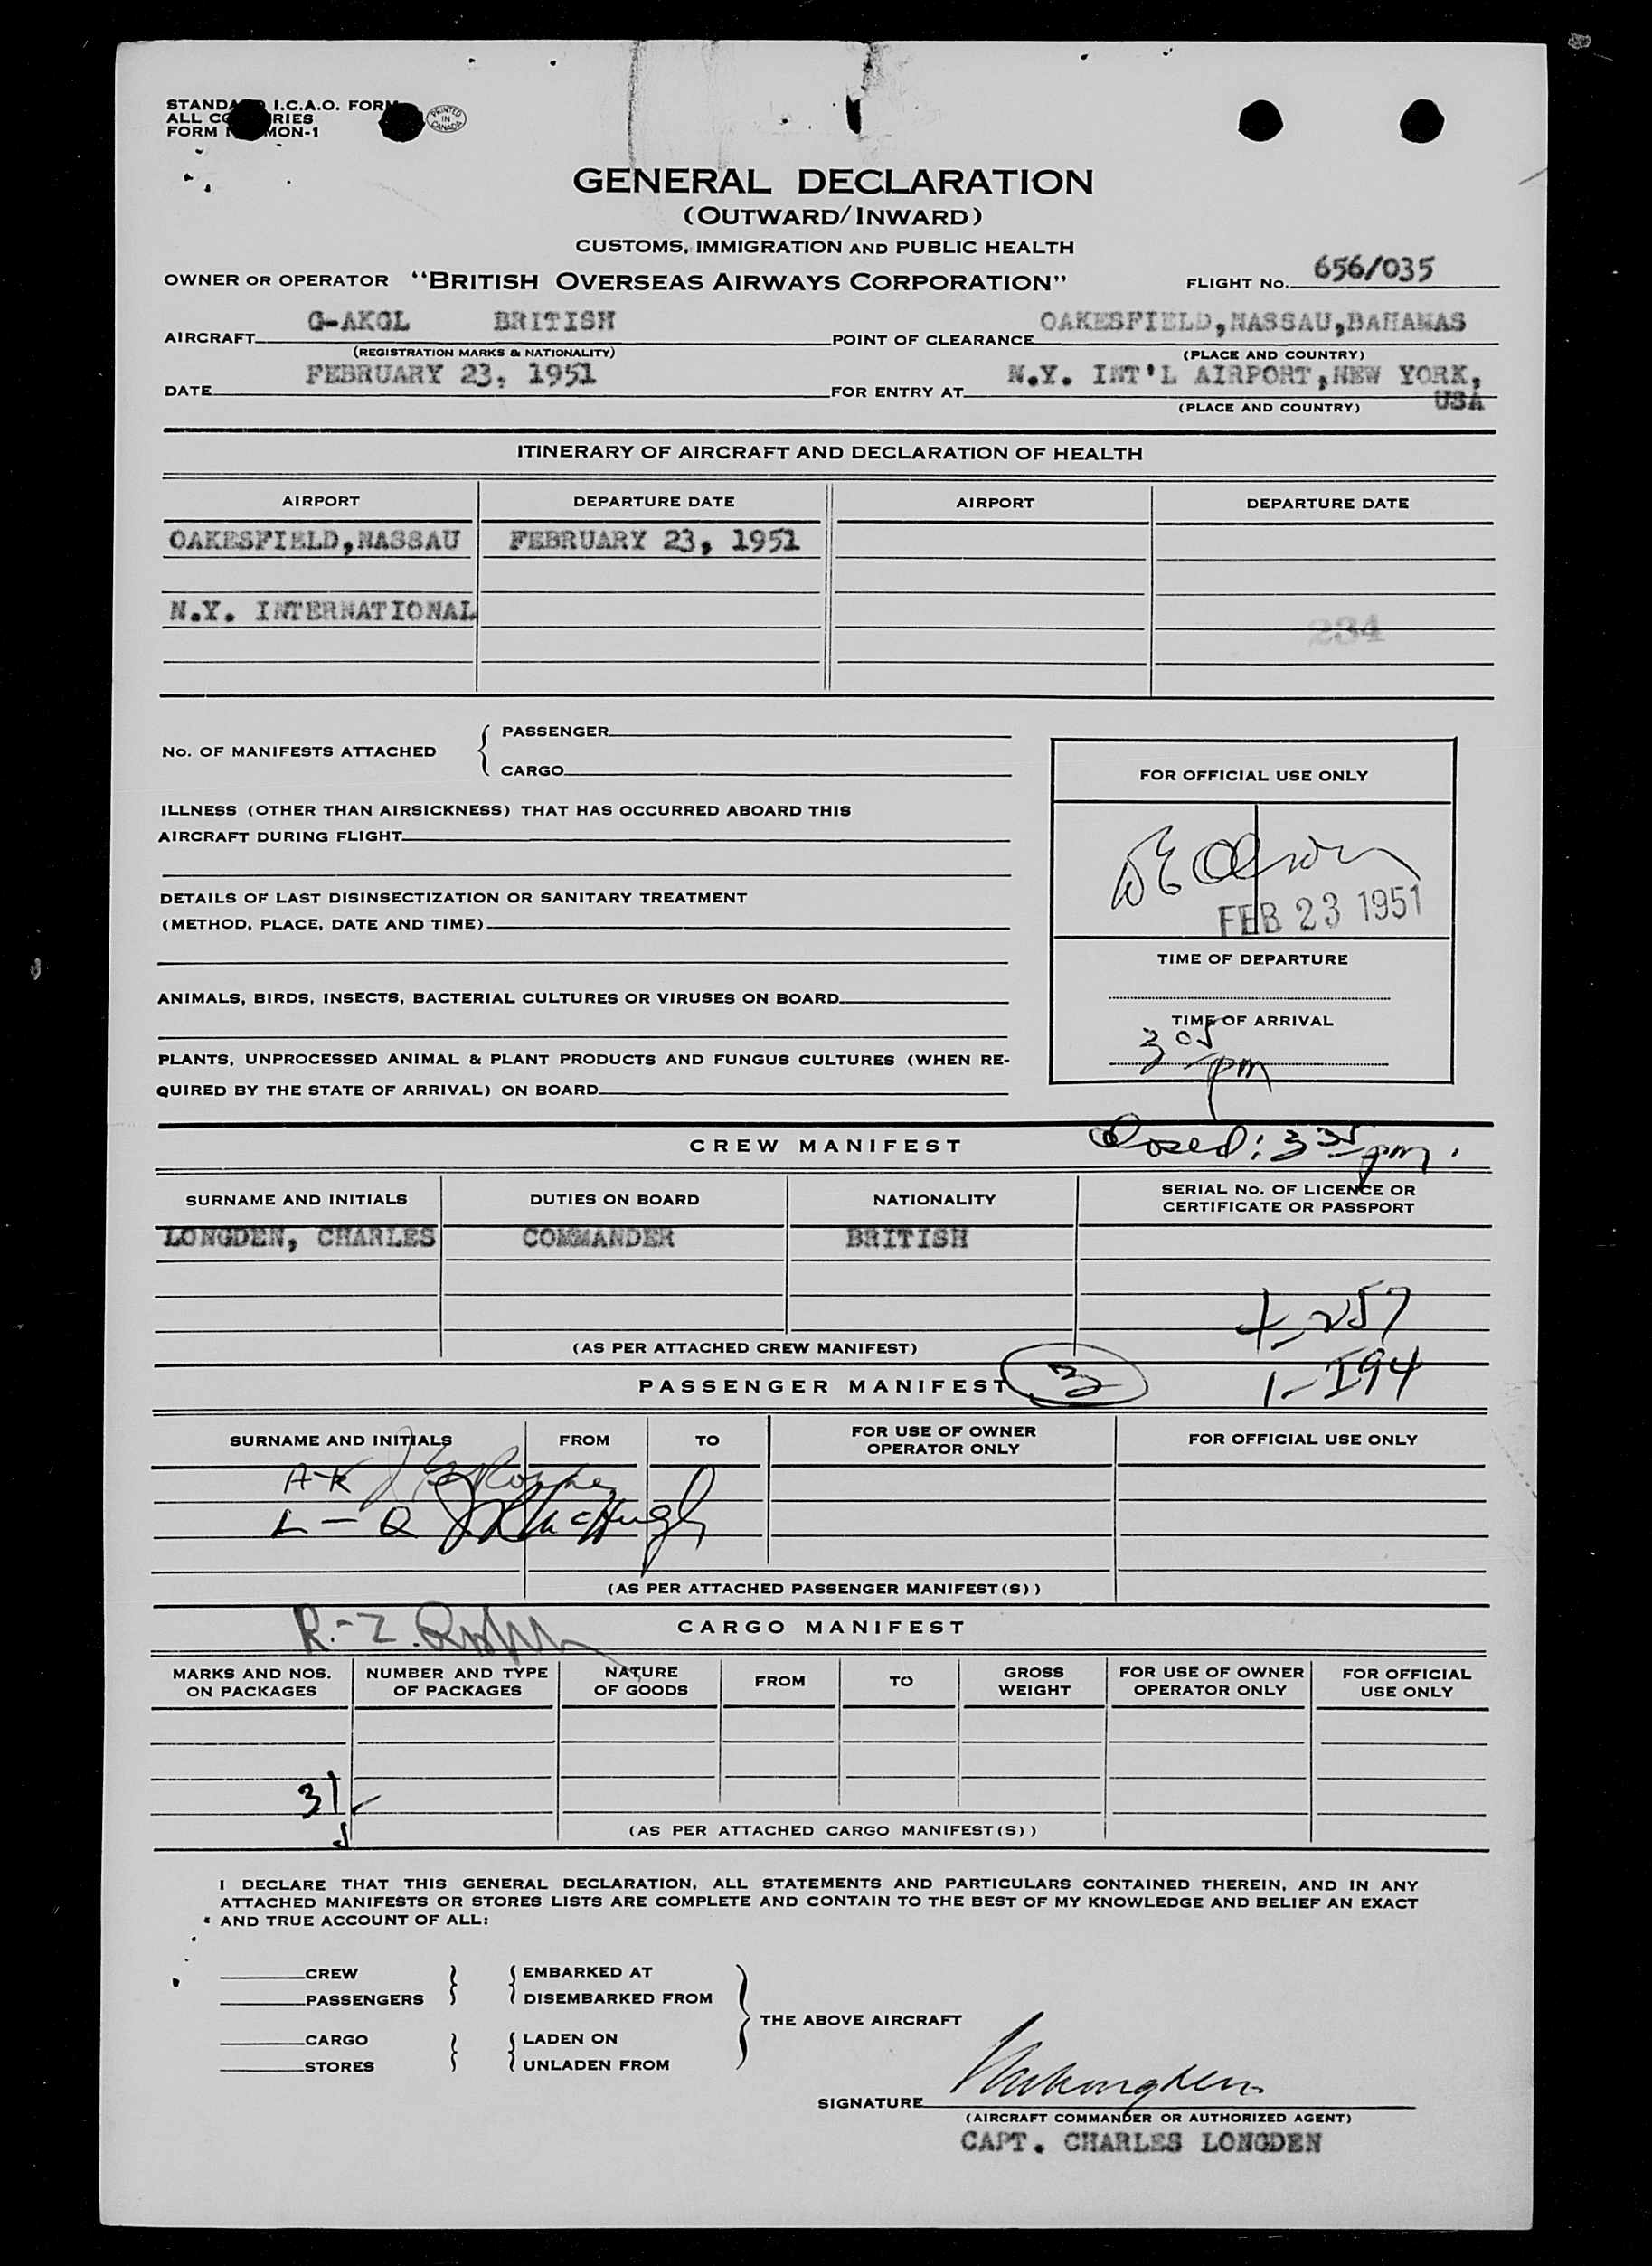 STANDARD I.C.A.O. FORM
ALL COUNTRIES
FORM MON-1
PRINTED IN CANADA
GENERAL DECLARATION
(OUTWARD/INWARD)
CUSTOMS, IMMIGRATION AND PUBLIC HEALTH
OWNER OR OPERATOR "BRITISH OVERSEAS AIRWAYS CORPORATION" FLIGHT No. 656/035
AIRCRAFT G-AKGL BRITISH POINT OF CLEARANCE OAKESFIELD,NASSAU,BAHAMAS
(REGISTRATION MARKS & NATIONALITY) (PLACE AND COUNTRY)
DATE FEBRUARY 23, 1951 FOR ENTRY AT N.Y. INT'L AIRPORT,NEW YORK, USA
(PLACE AND COUNTRY)
ITINERARY OF AIRCRAFT AND DECLARATION OF HEALTH
AIRPORT DEPARTURE DATE AIRPORT DEPARTURE DATE
OAKESFIELD,NASSAU FEBRUARY 23, 1951
N.Y. INTERNATIONAL
234
No. OF MANIFESTS ATTACHED { PASSENGER
CARGO
FOR OFFICIAL USE ONLY
ILLNESS (OTHER THAN AIRSICKNESS) THAT HAS OCCURRED ABOARD THIS
AIRCRAFT DURING FLIGHT
DETAILS OF LAST DISINSECTIZATION OR SANITARY TREATMENT
(METHOD, PLACE, DATE AND TIME)
FEB 23 1951
TIME OF DEPARTURE
ANIMALS, BIRDS, INSECTS, BACTERIAL CULTURES OR VIRUSES ON BOARD
TIME OF ARRIVAL
3 05 pm
PLANTS, UNPROCESSED ANIMAL & PLANT PRODUCTS AND FUNGUS CULTURES (WHEN RE-
QUIRED BY THE STATE OF ARRIVAL) ON BOARD
CREW MANIFEST Closed: 3 35 pm.
SURNAME AND INITIALS DUTIES ON BOARD NATIONALITY SERIAL No. OF LICENCE OR
CERTIFICATE OR PASSPORT
LONGDEN, CHARLES COMMANDER BRITISH
257
(AS PER ATTACHED CREW MANIFEST)
1-I94
PASSENGER MANIFEST
SURNAME AND INITIALS FROM TO FOR USE OF OWNER
OPERATOR ONLY FOR OFFICIAL USE ONLY
A-K
L-Q
(AS PER ATTACHED PASSENGER MANIFEST(S))
R.-Z.
CARGO MANIFEST
MARKS AND NOS.
ON PACKAGES NUMBER AND TYPE
OF PACKAGES NATURE
OF GOODS FROM TO GROSS
WEIGHT FOR USE OF OWNER
OPERATOR ONLY FOR OFFICIAL
USE ONLY
31
(AS PER ATTACHED CARGO MANIFEST(S))
I DECLARE THAT THIS GENERAL DECLARATION, ALL STATEMENTS AND PARTICULARS CONTAINED THEREIN, AND IN ANY
ATTACHED MANIFESTS OR STORES LISTS ARE COMPLETE AND CONTAIN TO THE BEST OF MY KNOWLEDGE AND BELIEF AN EXACT
AND TRUE ACCOUNT OF ALL:
CREW } { EMBARKED AT
PASSENGERS DISEMBARKED FROM
THE ABOVE AIRCRAFT
CARGO } { LADEN ON
STORES UNLADEN FROM
SIGNATURE
(AIRCRAFT COMMANDER OR AUTHORIZED AGENT)
CAPT. CHARLES LONGDEN